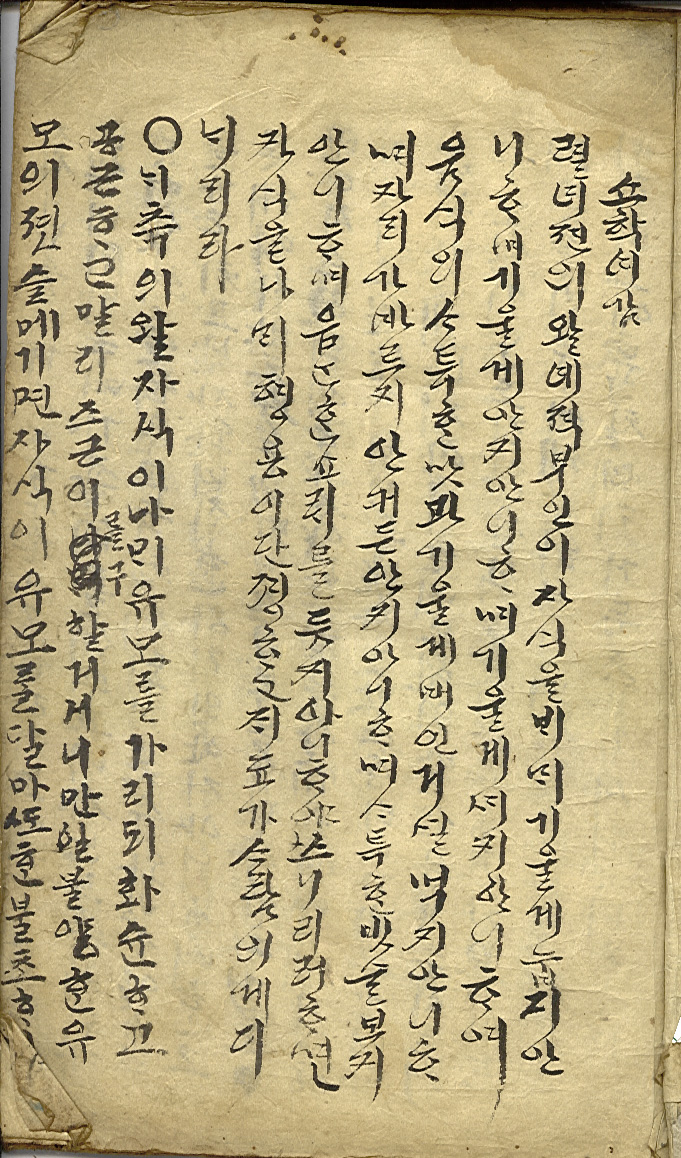 쇼학여감
렬녀젼의 왈 녜젹 부인이 자식을 비믜 기울게 눕지 안
니ᄒᆞ며 기울게 안지 안니ᄒᆞ며 기울게 셔지 안니ᄒᆞ여
음식의 ᄉᆞ특ᄒᆞᆫ 맛과 기울게 베인 거설 먹지 안니ᄒᆞ
며 자리가 바르지 안커든 안지 안니ᄒᆞ며 ᄉᆞ특ᄒᆞᆫ 빗츨 보지
안니ᄒᆞ며 음난ᄒᆞᆫ 쇼리를 듯지 아니ᄒᆞ야쓰니 리러ᄒᆞ면
자식을 나미 형용이 단졍ᄒᆞ고 ᄌᆡ죠가 ᄉᆞ람의게 더
너리라
○ ᄂᆡ측의 왈 자식이 나미 유모를 가리되 화슌ᄒᆞ고
공근ᄒᆞ고 말리 즈근이를 구할거시니 만일 불양ᄒᆞᆫ 유
모의 졋슬 메기면 자식이 유모를 달마 또ᄒᆞᆫ 불초ᄒᆞ